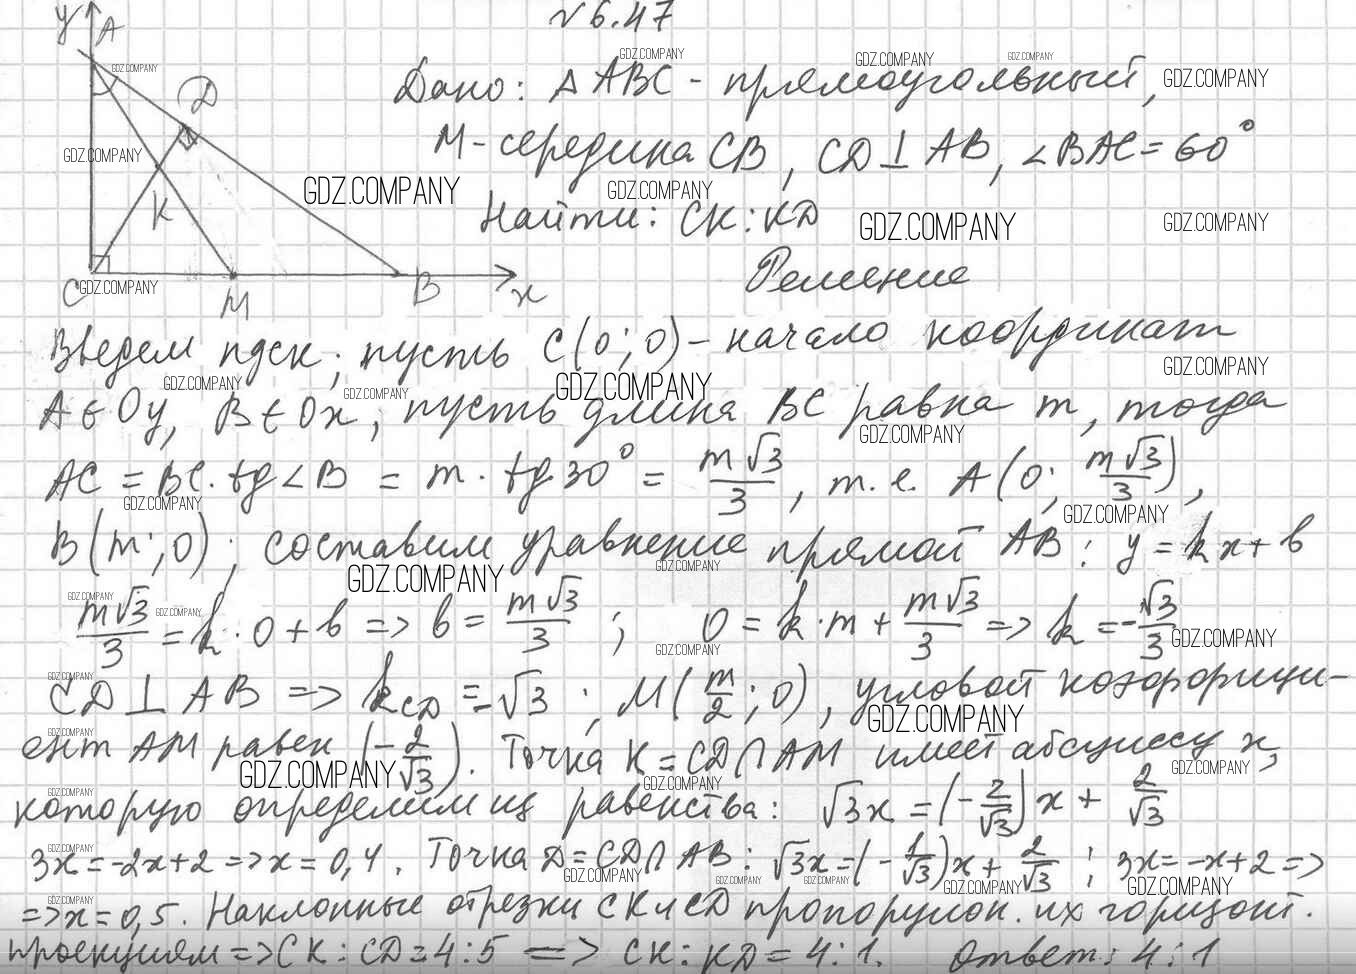 √6.47
y A
D
K
C M B x
Дано: △ ABC - прямоугольный,
M - середина CB, CD ⊥ AB, ∠BAC = 60°
Найти: CK : KD
Решение
Введем ПДСК; пусть C(0; 0) - начало координат
A ∈ Oy, B ∈ Ox, пусть длина BC равна m, тогда
AC = BC · tg∠B = m · tg 30° = m√3/3, т. е. A(0; m√3/3),
B(m; 0); составим уравнение прямой AB: y = kx + b
m√3/3 = k · 0 + b => b = m√3/3; 0 = k · m + m√3/3 => k = -√3/3
CD ⊥ AB => k_CD = √3; M(m/2; 0), угловой коэффици-
ент AM равен (-2/√3). Точка K = CD ∩ AM имеет абсциссу x,
которую определим из равенства: √3x = (-2/√3)x + 2/√3
3x = -2x + 2 => x = 0,4. Точка D = CD ∩ AB: √3x = (-1/√3)x + 2/√3; 3x = -x + 2 =>
=> x = 0,5. Наклонные отрезки CK и CD пропорцион. их горизонт.
проекциям => CK : CD = 4 : 5 => CK : KD = 4 : 1. Ответ: 4 : 1
GDZ.COMPANY